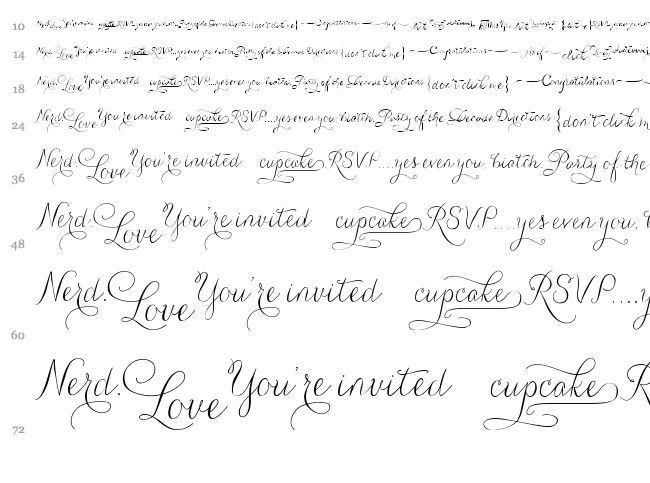 10 Nerd. Love You're invited cupcake RSVP....yes even you, biatch. Party of the Decade Directions {don't click me} Congratulations
14 Nerd. Love You're invited cupcake RSVP....yes even you, biatch. Party of the Decade Directions {don't click me} Congratulations
18 Nerd. Love You're invited cupcake RSVP....yes even you, biatch. Party of the Decade Directions {don't click me} Congratulations
24 Nerd. Love You're invited cupcake RSVP....yes even you, biatch. Party of the Decade Directions {don't click m
36 Nerd. Love You're invited cupcake RSVP....yes even you, biatch. Party of the
48 Nerd. Love You're invited cupcake RSVP....yes even you,
60 Nerd. Love You're invited cupcake RSVP....y
72 Nerd. Love You're invited cupcake R